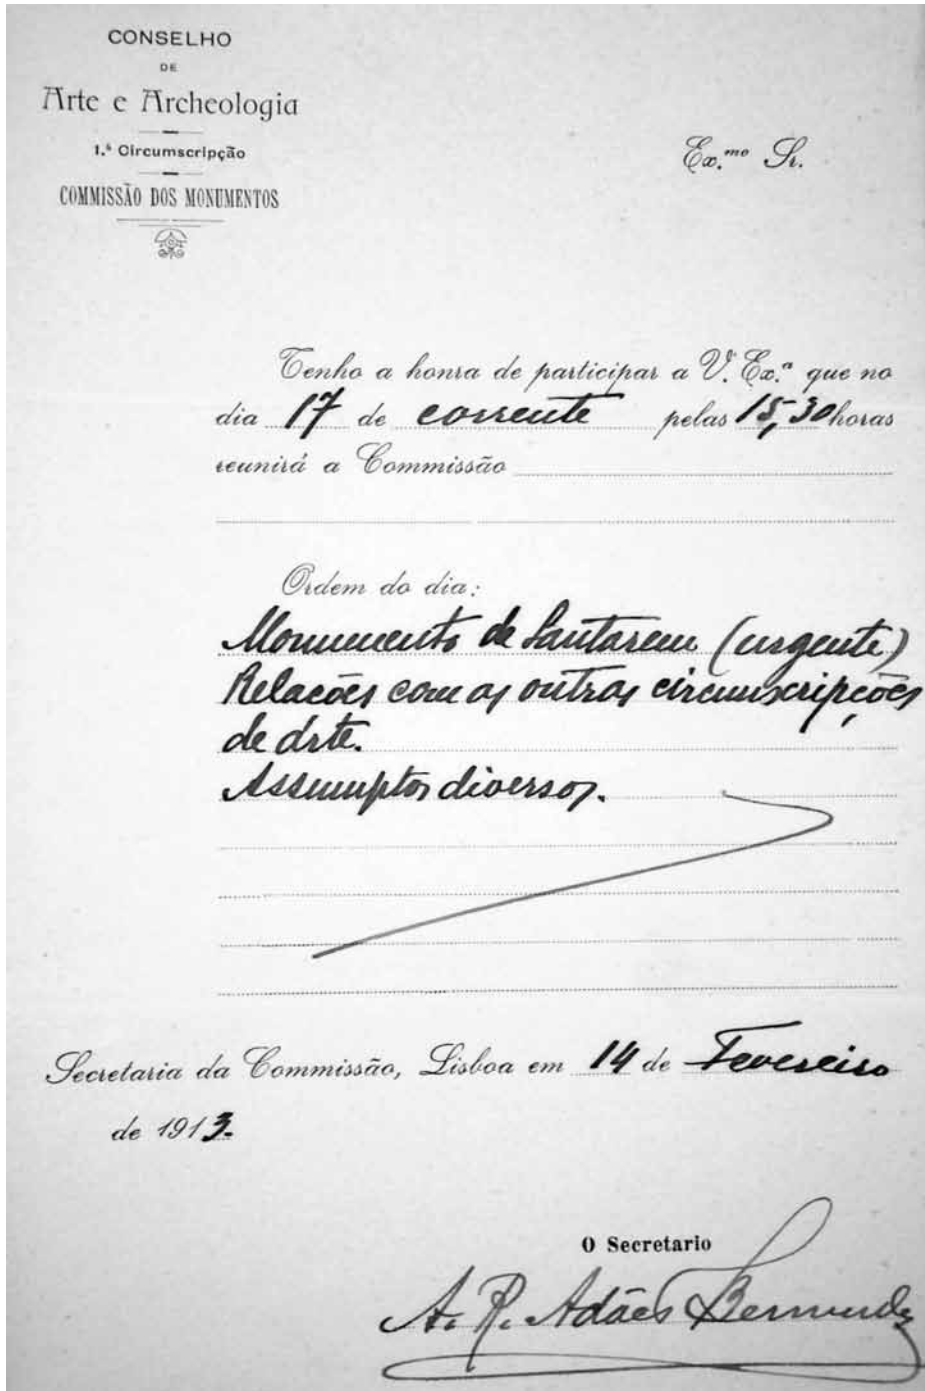 CONSELHO
DE
Arte e Archeologia
1.ª Circumscripção
COMMISSÃO DOS MONUMENTOS
Ex.mo Sr.
Tenho a honra de participar a V. Ex.ª que no
dia 17 de corrente pelas 15,30 horas
reunirá a Commissão
Ordem do dia:
Monumento de Santarem (urgente)
Relações com as outras circumscripções
de Arte.
Assumptos diversos.
Secretaria da Commissão, Lisboa em 14 de Fevereiro
de 1913.
O Secretario
A. R. Adães Bermudes